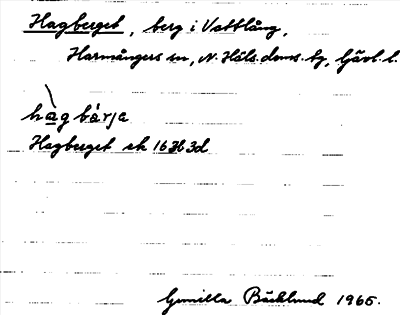 Hagberget, berg i Vattlång,
Harmångers sn, N. Häls. doms. tg, Gävl. l.
hagbärja
Hagberget ek 16H 3d
Gunilla Bäcklund 1965.